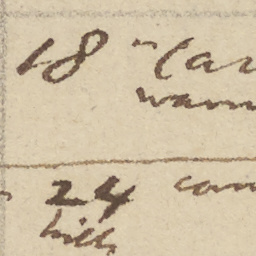 18 "(ar
warm
24 com
hills